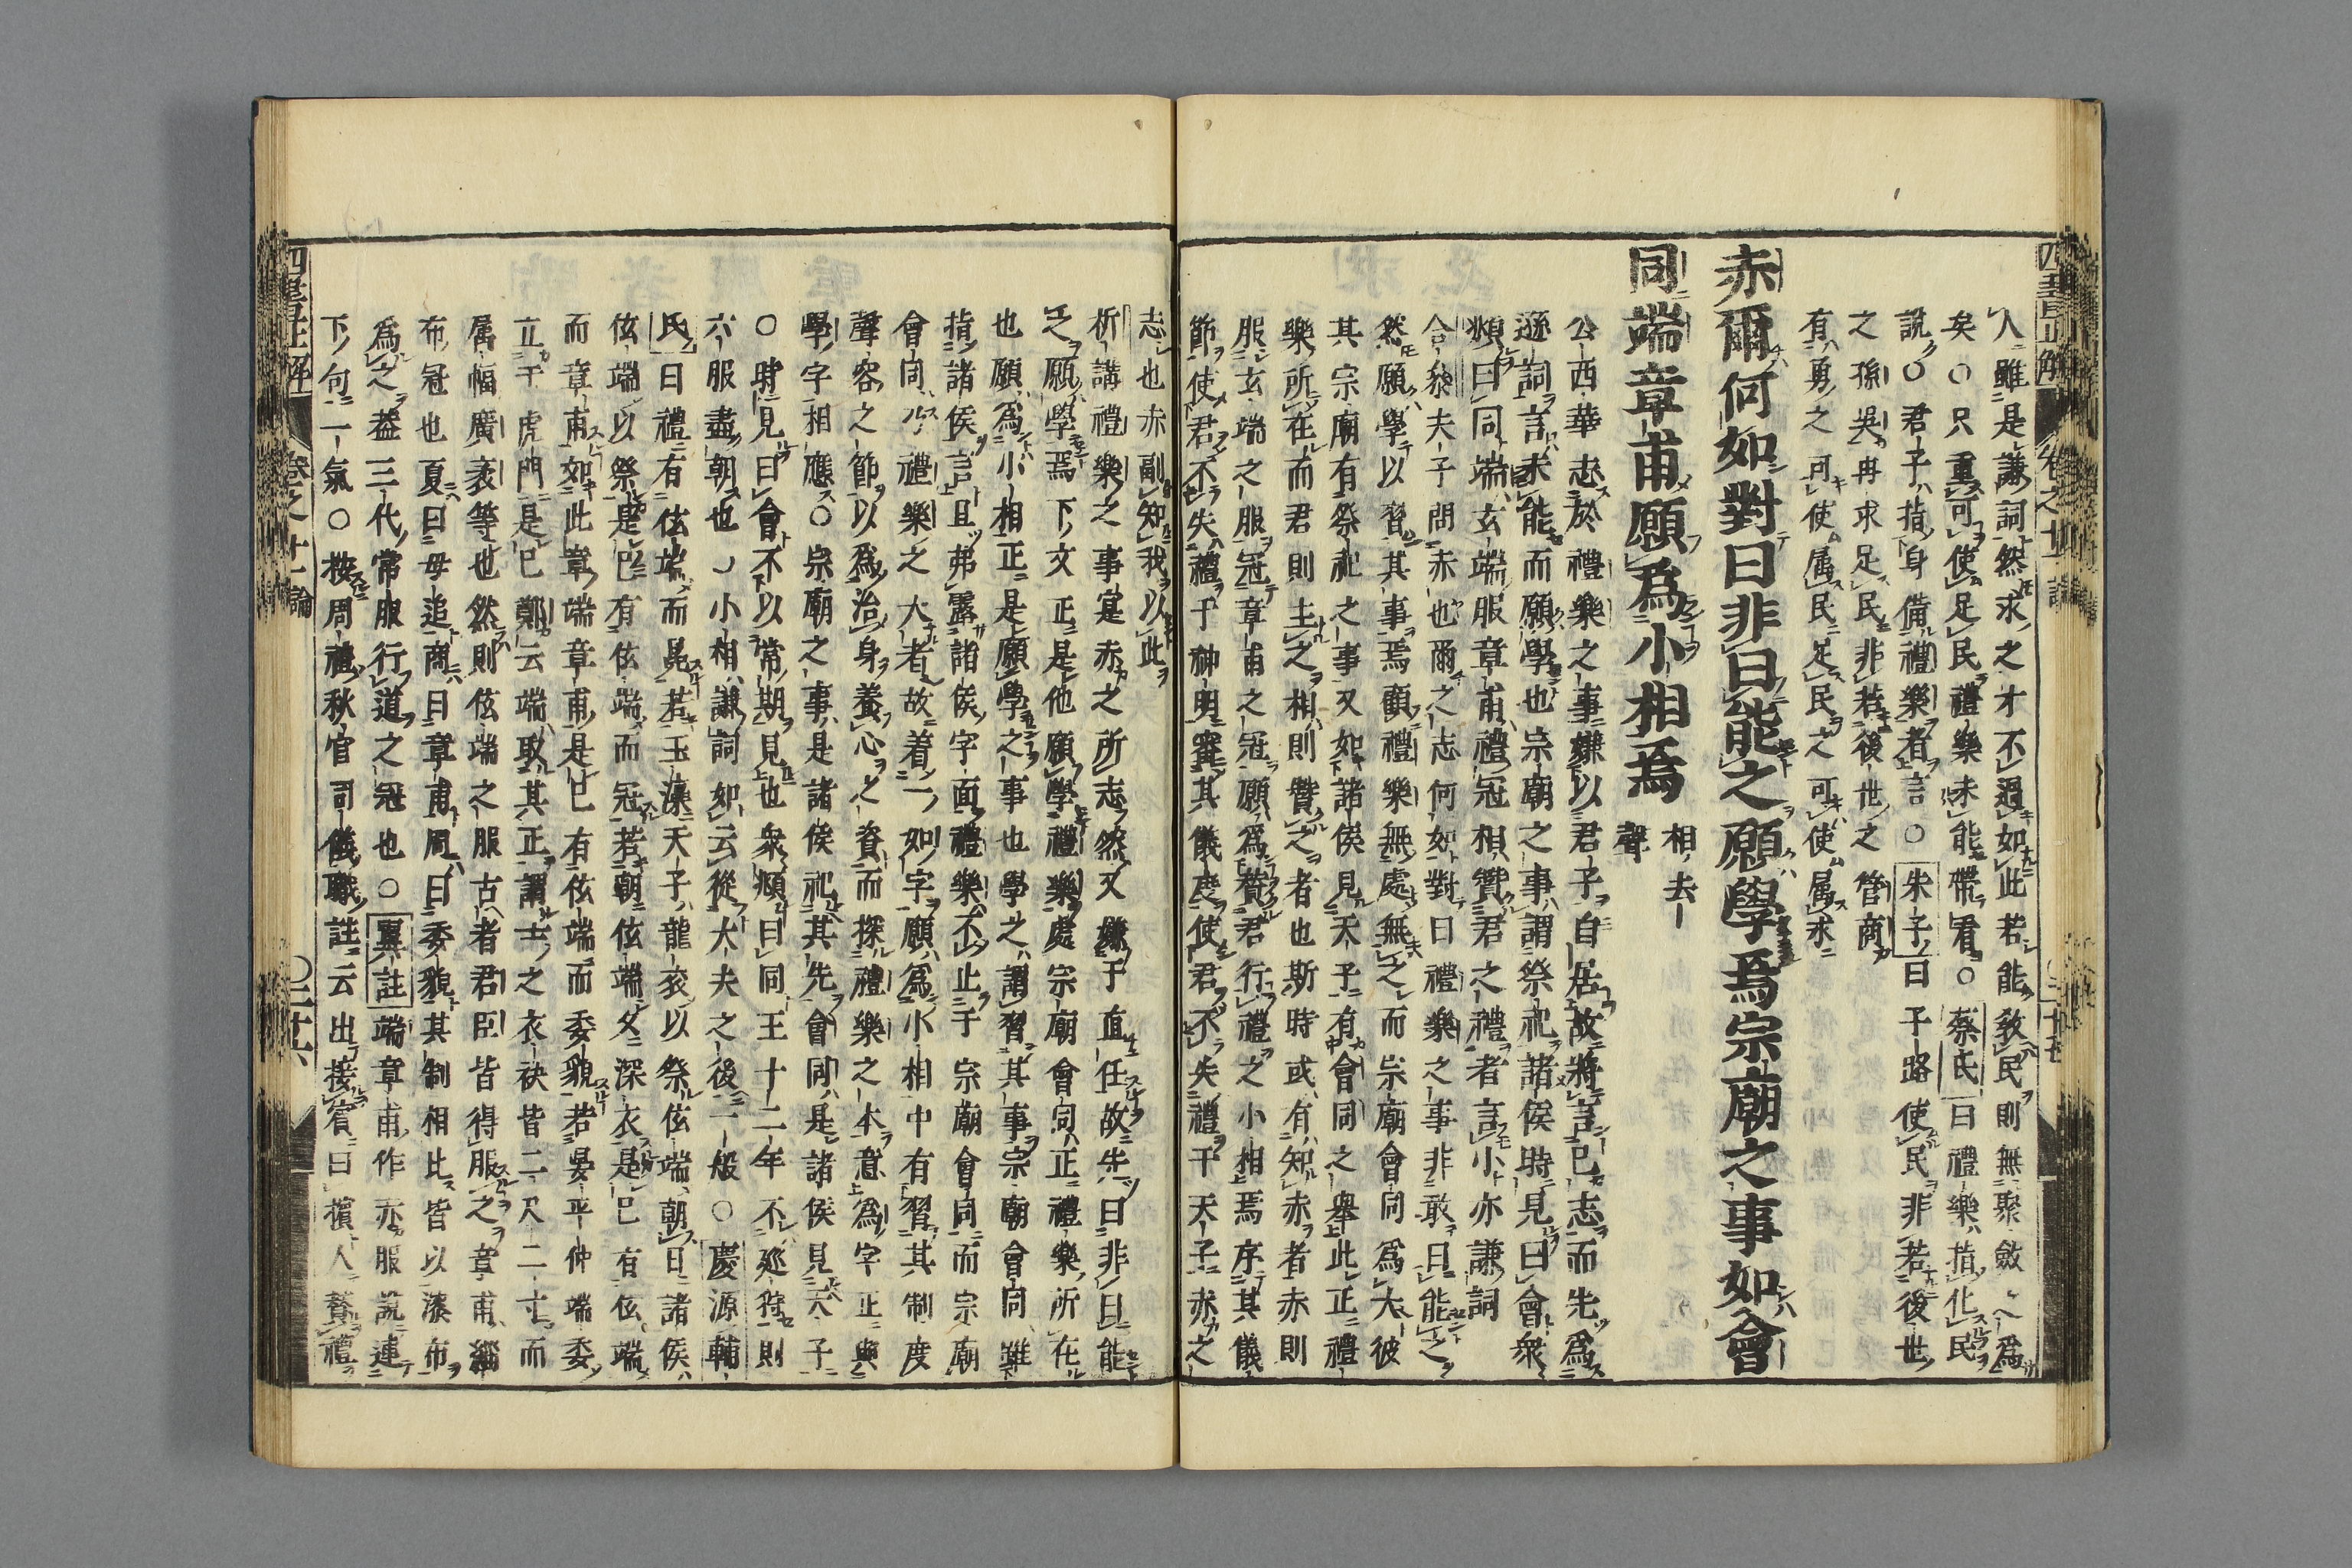 人雖是謙詞然求之才不過如此若能敎民則無聚斂之為
矣○只重可使足民禮樂未能帶看○蔡氏曰禮樂指化民
說○君子指身備禮樂者言○朱子曰子路使民非若後世
之孫吳冉求足民非若後世之管商
有勇之可使属民足民之可使属求
赤爾何如對曰非曰能之願學焉宗廟之事如會
同端章甫願為小相焉 相去聲
公西華志於禮樂之事嫌以君子自居故將言己志而先為
遜詞言未能而願學也宗廟之事謂祭祀諸侯時見曰會衆
頫曰同端玄端服章甫禮冠相贊君之禮者言小亦謙詞
合參夫子問赤也爾之志何如對曰禮樂之事非敢曰能之
然願學以習其事焉顧禮樂無處無之而宗廟會同為大彼
其宗廟有祭祀之事又如諸侯見天子有會同之舉此正禮
樂所在而君則主之相則贊之者也斯時或有知赤者赤則
服玄端之服冠章甫之冠願為贊君行禮之小相焉序其儀
節使君不失禮于神明審其儀度使君不失禮于天子赤之
志也赤副知我以此
析講禮樂之事寔赤之所志然又嫌于直任故先曰非曰能
之願學焉下文正是他願學禮樂處宗廟會同正禮樂所在
也願為小相正是願學之事也學之謂習其事宗廟會同雖
指諸侯言且弗露諸侯字面禮樂不止于宗廟會同而宗廟
會同乃禮樂之大者故着一如字願為小相中有習其制度
聲容之節以為治身養心之資而探禮樂之本意為字正與
學字相應○宗廟之事是諸侯祀其先會同是諸侯見天子
○時見曰會不以常期見也衆頫曰同王十二年不廵狩則
六服盡朝也○小相謙詞如云從大夫之後一般○慶源輔
氏曰禮有伭端而冕若玉藻天子龍衮以祭伭端朝日諸侯
伭端以祭是巳有伭端而冠若朝伭端夕深衣是巳有伭端
而章甫如此章端章甫是巳有伭端而委貌若晏平仲端委
立于虎門是巳鄭云端取其正謂士之衣袂皆二尺二寸而
属幅廣袤等也然則伭端之服古者君臣皆得服之章甫緇
布冠也夏曰毋追商曰章甫周曰委貌其制相比皆以漆布
為之蓋三代常服行道之冠也○翼註端章甫作亦服說連
下句一氣○按周禮秋官司儀職註云出接賓曰擯入贊禮
四書正解 卷之十一論 ○二十六